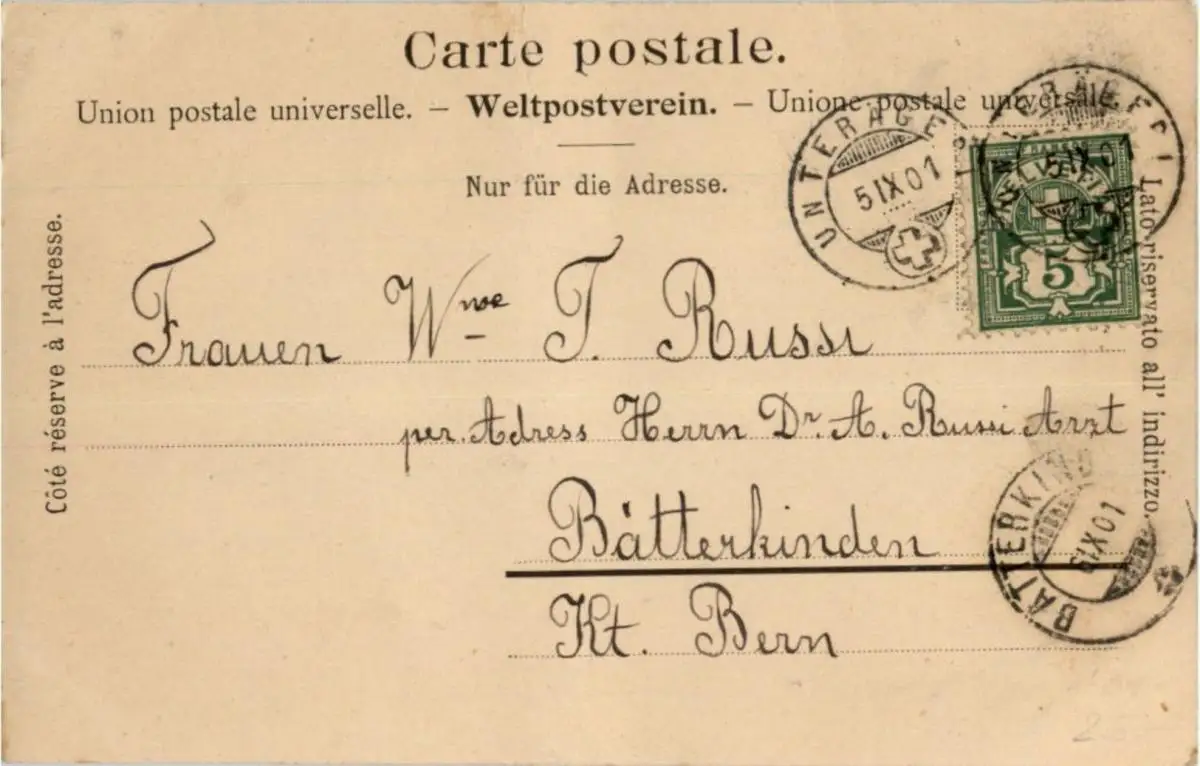 Carte postale.
Union postale universelle. — Weltpostverein. — Unione postale universale.
Nur für die Adresse.
Côté réserve à l'adresse.
Lato riservato all' indirizzo.
UNTERÄGERI
5 IX 01
UNTERÄGERI
5 IX 01
HELVETIA
5
Frauen Wwe T. Russi
per. Adress Herrn Dr. A. Russi Arzt
Bätterkinden
Kt. Bern
BÄTTERKINDEN
6 IX 01